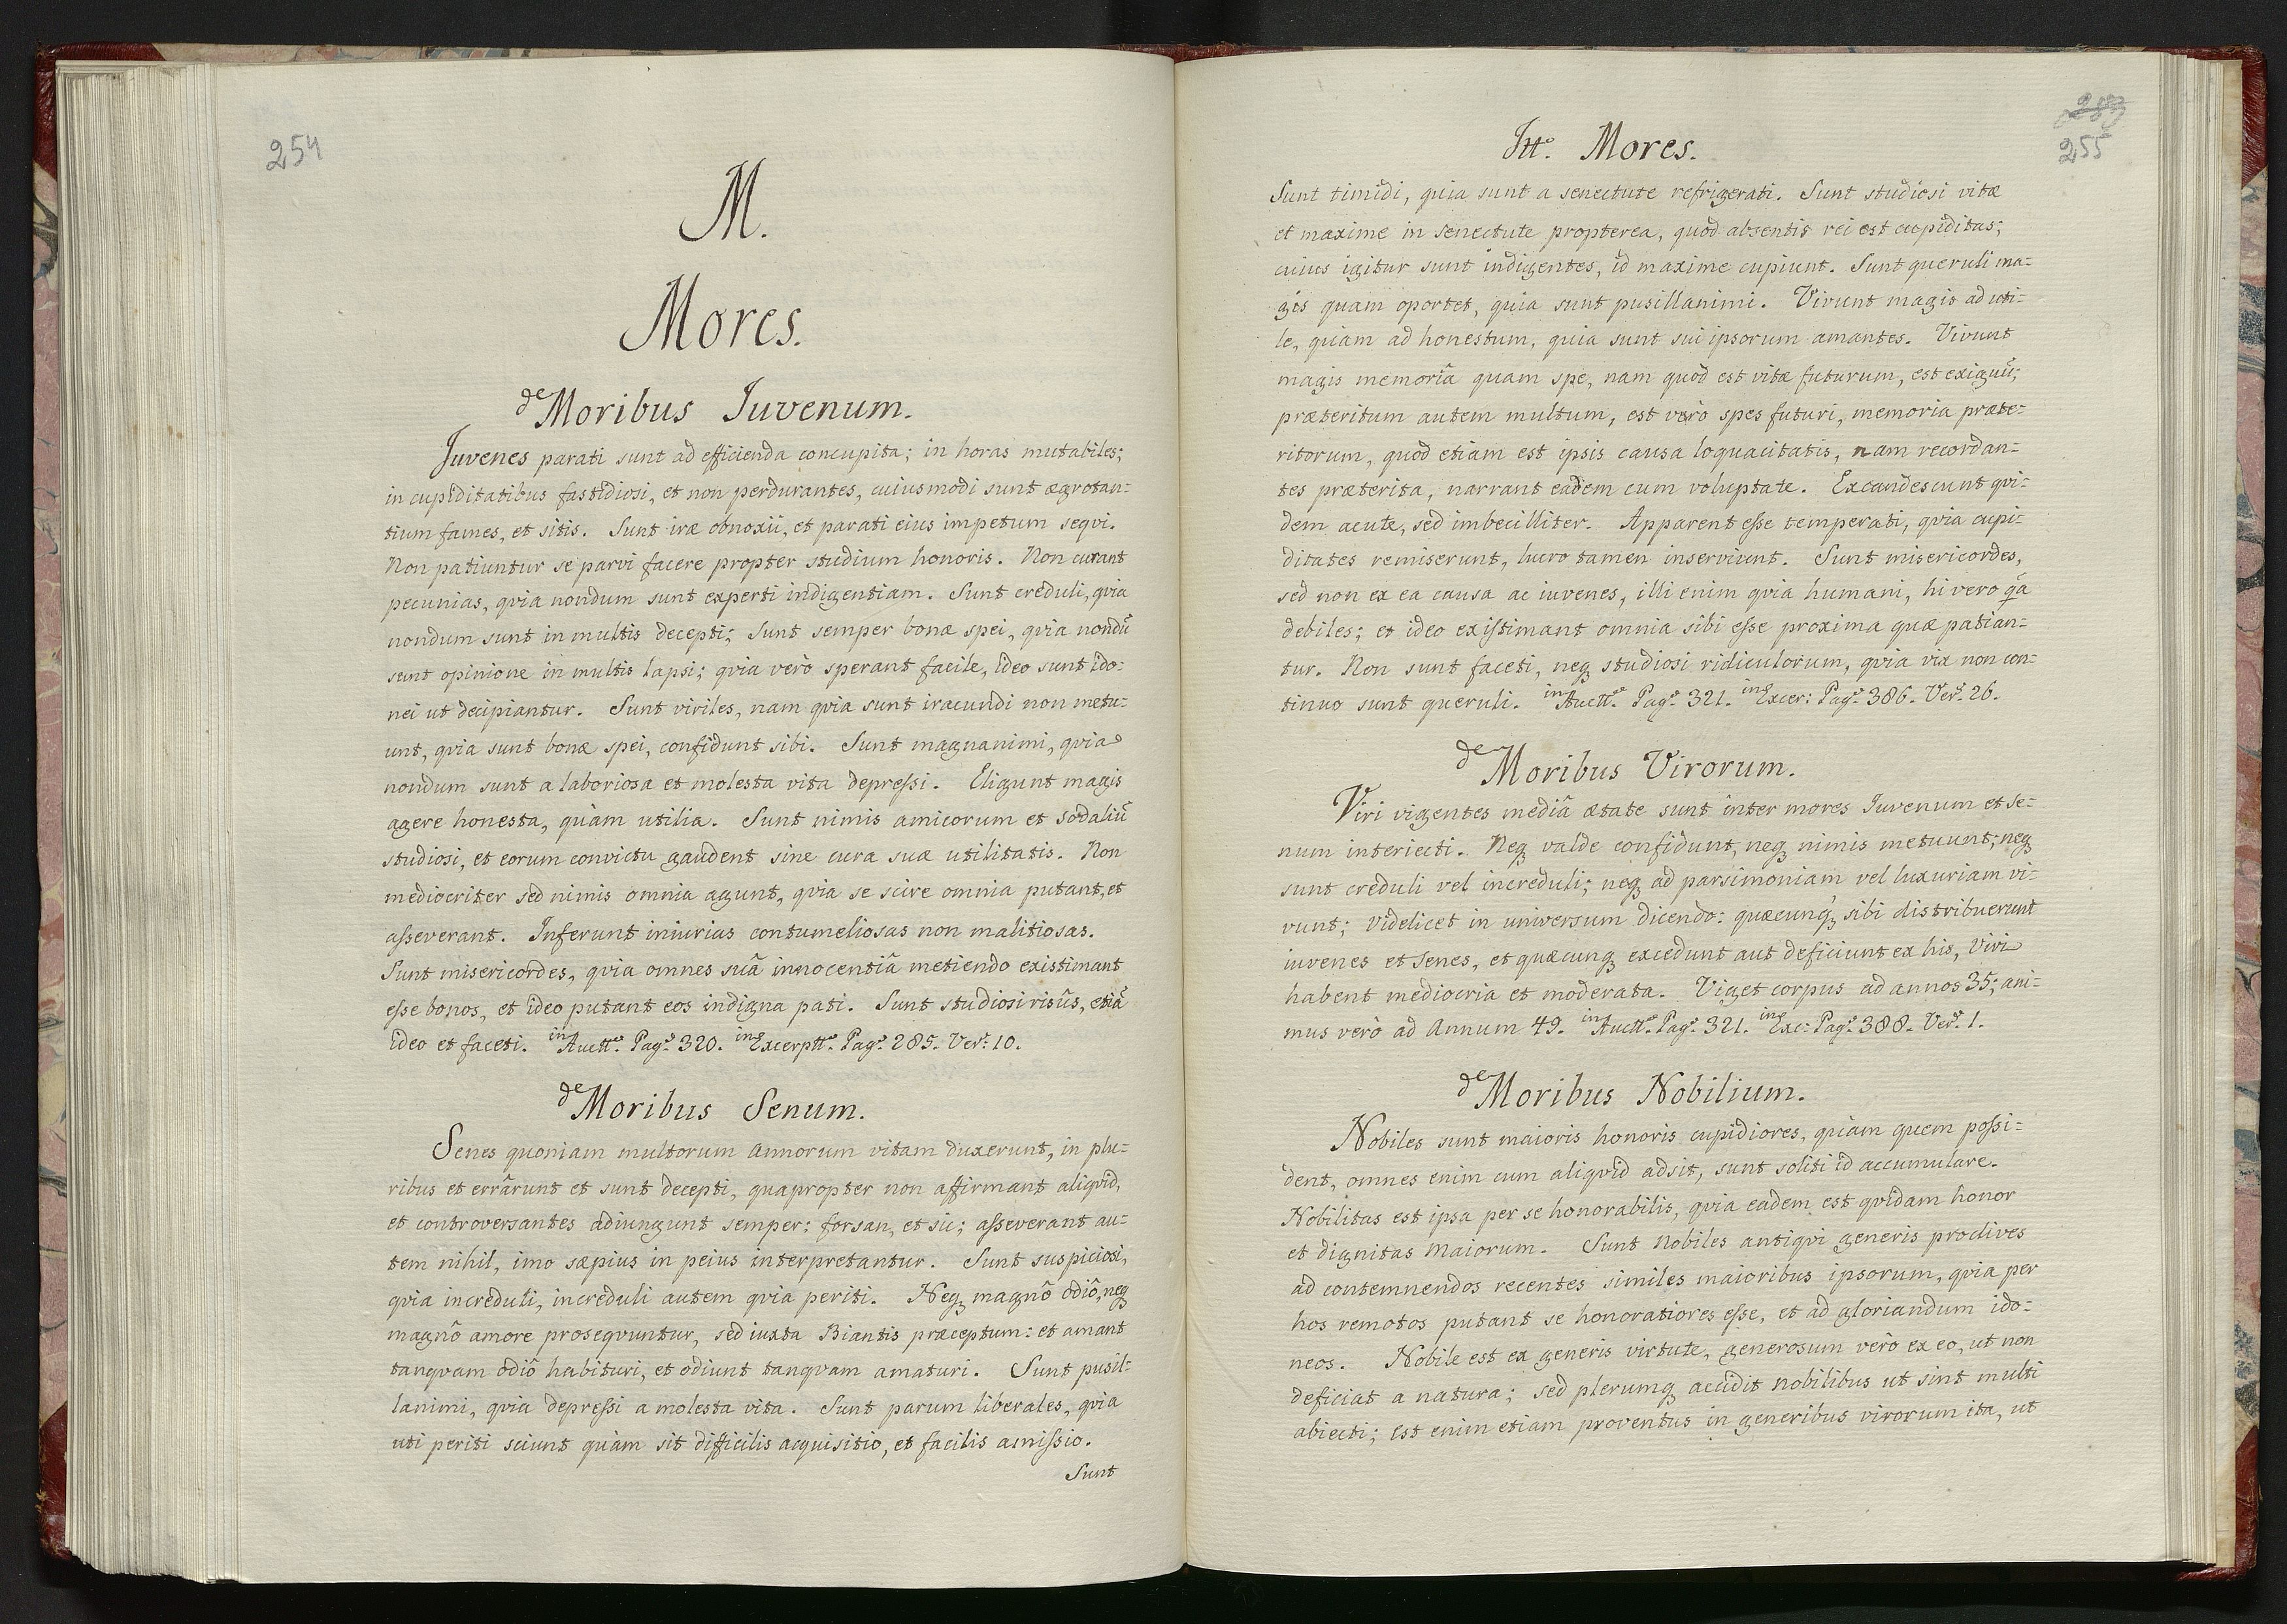 254
M.
Mores.
de Moribus Juvenum.
Juvenes parati sunt ad efficienda concupita; in horas mutabiles;
in cupiditatibus fastidiosi, et non perdurantes, cuiusmodi sunt ægrotan-
tium fames, et sitis. Sunt iræ obnoxii, et parati eius impetum seqvi.
Non patiuntur se parvi facere propter studium honoris. Non curant
pecunias, qvia nondum sunt experti indigentiam. Sunt creduli, qvia
nondum sunt in multis decepti; sunt semper bonæ spei, qvia nondũ
sunt opinione in multis lapsi; qvia verò sperant facile, ideo sunt ido-
nei ut decipiantur. Sunt viriles, nam qvia sunt iracundi non metu-
unt, qvia sunt bonæ spei, confidunt sibi. Sunt magnanimi, qvia
nondum sunt a laboriosa et molesta vita depressi. Eligunt magis
agere honesta, quàm utilia. Sunt nimis amicorum et sodaliũ
studiosi, et eorum convictu gaudent sine cura suæ utilitatis. Non
mediocriter sed nimis omnia agunt, qvia se scire omnia putant, et
asseverant. Inferunt iniurias contumeliosas non malitiosas.
Sunt misericordes, qvia omnes suâ innocentiâ metiendo existimant
esse bonos, et ideo putant eos indigna pati. Sunt studiosi risûs, etiã
ideo et faceti. in Auctt. Pag. 320. ins Excerptt. Pag. 285. Ver. 10.
de Moribus Senum.
Senes quoniam multorum Annorum vitam duxerunt, in plu-
ribus et errârunt et sunt decepti, quapropter non affirmant aliqvid,
et controversantes adiungunt semper: forsan, et sic; asseverant au-
tem nihil, imo sæpius in peius interpretantur. Sunt suspiciosi,
qvia increduli, increduli autem qvia periti. Neq magnô odiô, neq
magnô amore proseqvuntur, sed iuxta Biantis præceptum: et amant
tanqvam odiô habituri, et odiunt tanqvam amaturi. Sunt pusil-
lanimi, qvia depressi a molesta vita. Sunt parum liberales, qvia
uti periti sciunt quàm sit difficilis acquisitio, et facilis amissio.
Sunt
253
255
Itt. Mores.
Sunt timidi, quia sunt a senectute refrigerati. Sunt studiosi vitæ
et maxime in senectute propterea, quòd absentis rei est cupiditas;
cuius igitur sunt indigentes, id maxime cupiunt. Sunt queruli ma-
gis quam oportet, quia sunt pusillanimi. Vivunt magis ad uti-
le, quam ad honestum, quia sunt sui ipsorum amantes. Vivunt
magis memoriâ quam spe, nam quod est vitæ futurum, est exiguũ;
præteritum autem multum, est verò spes futuri, memoria præte-
ritorum, quòd etiam est ipsis causa loquacitatis, nam recordan-
tes præterita, narrant eadem cum voluptate. Excandescunt qvi-
dem acute, sed imbecilliter. Apparent esse temperati, qvia cupi-
ditates remiserunt, lucro tamen inserviunt. Sunt misericordes,
sed non ex ea causa ac iuvenes, illi enim qvia humani, hi vero qa
debiles; et ideo existimant omnia sibi esse proxima quæ patian-
tur. Non sunt faceti, neq studiosi ridiculorum, qvia vix non con-
tinuo sunt queruli. in Auctt. Pag. 321. ins Excer: Pag. 386. Ver. 26.
de Moribus Virorum.
Viri vigentes mediâ ætate sunt inter mores Iuvenum et Se-
num interiecti. Neq valde confidunt, neq nimis metuunt; neq
sunt creduli vel increduli; neq ad parsimoniam vel luxuriam vi-
vunt; videlicet in universum dicendo: quæcunq sibi distribuerunt
iuvenes et senes, et quæcunq excedunt aut deficiunt ex his, Viri
habent mediocria et moderata. Viget corpus ad annos 35; ani-
mus verò ad Annum 49. in Auctt. Pag. 321. ins Exc: Pag. 388. Ver. 1.
de Moribus Nobilium.
Nobiles sunt maioris honoris cupidiores, quàm quem possi-
dent, omnes enim cum aliqvid adsit, sunt soliti id accumulare.
Nobilitas est ipsa per se honorabilis, qvia eadem est qvidam honor
et dignitas Maiorum. Sunt Nobiles antiqvi generis proclives
ad contemnendos recentes similes maioribus ipsorum, qvia per
hos remotos putant se honoratiores esse, et ad gloriandum ido-
neos. Nobile est ex generis virtute, generosum verò ex eo, ut non
deficiat a natura; sed plerumq accidit nobilibus ut sint multi
abiecti; est enim etiam proventus in generibus virorum ita, ut